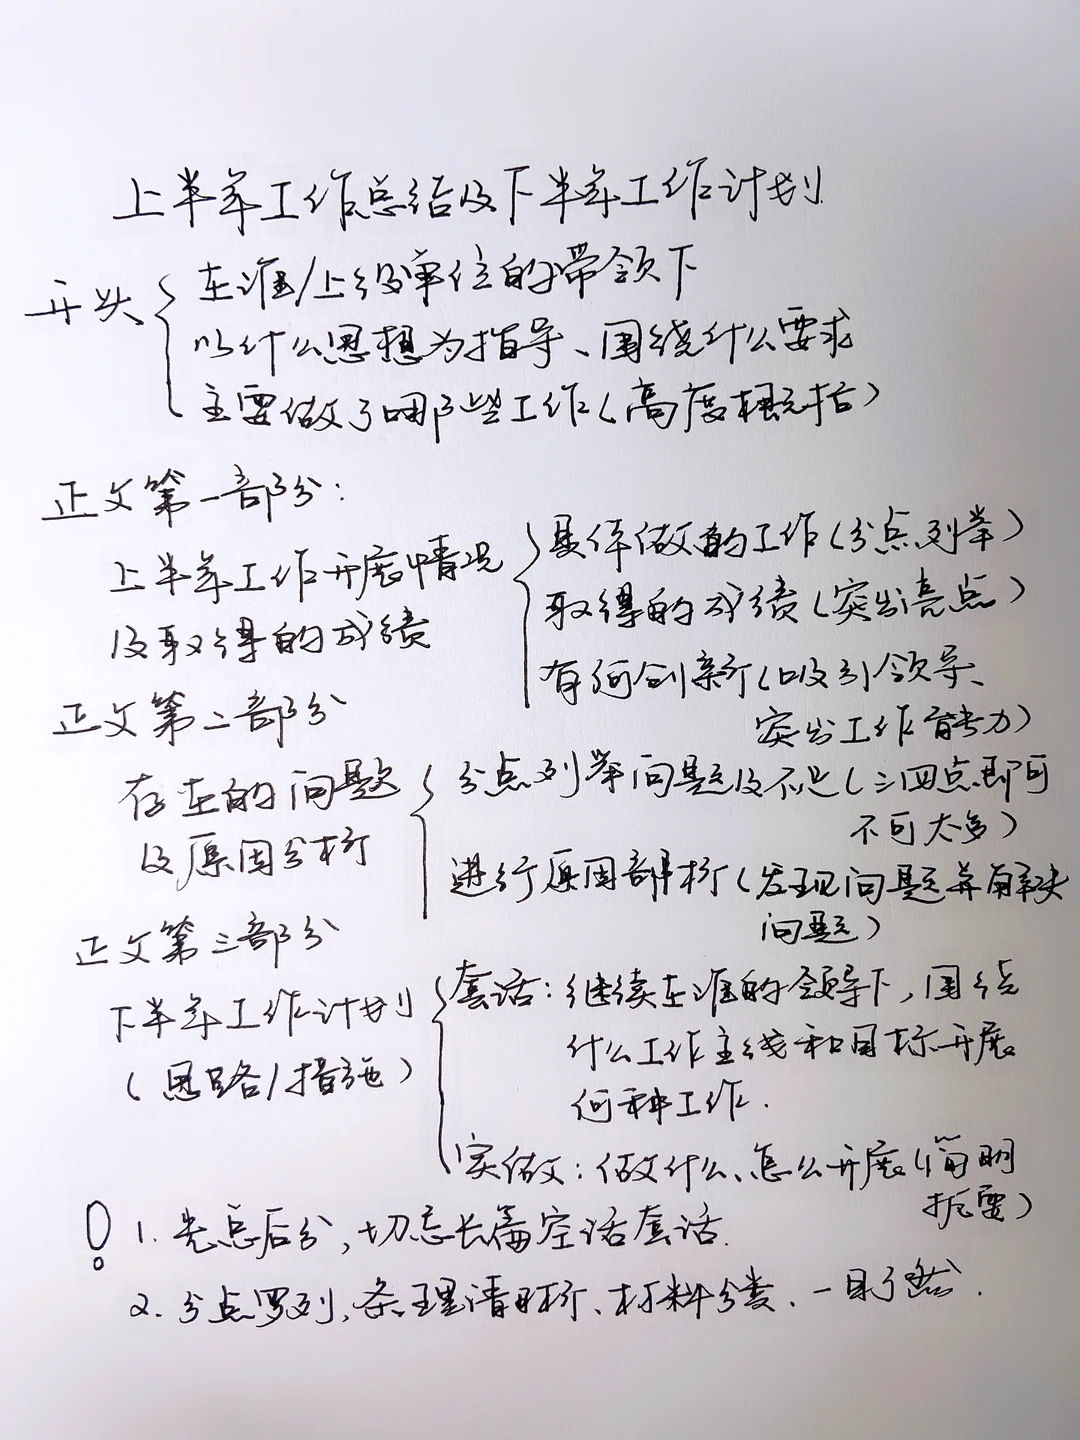 上半年工作总结及下半年工作计划
开头
在谁/上级单位的带领下
以什么思想为指导、围绕什么要求
主要做了哪些工作(高度概括)
正文第一部分:
上半年工作开展情况
及取得的成绩
具体做的工作(分点列举)
取得的成绩(突出亮点)
有何创新(吸引领导、
突出工作能力)
正文第二部分
存在的问题
及原因分析
分点列举问题及不足(三四点即可
不可太多)
进行原因剖析(发现问题并解决
问题)
正文第三部分
下半年工作计划
(思路/措施)
套话:继续在谁的领导下,围绕
什么工作主线和目标开展
何种工作.
实做:做什么、怎么开展(简明
扼要)
! 1.先总后分,切忌长篇空话套话.
2.分点罗列,条理清晰、材料分类、一目了然.